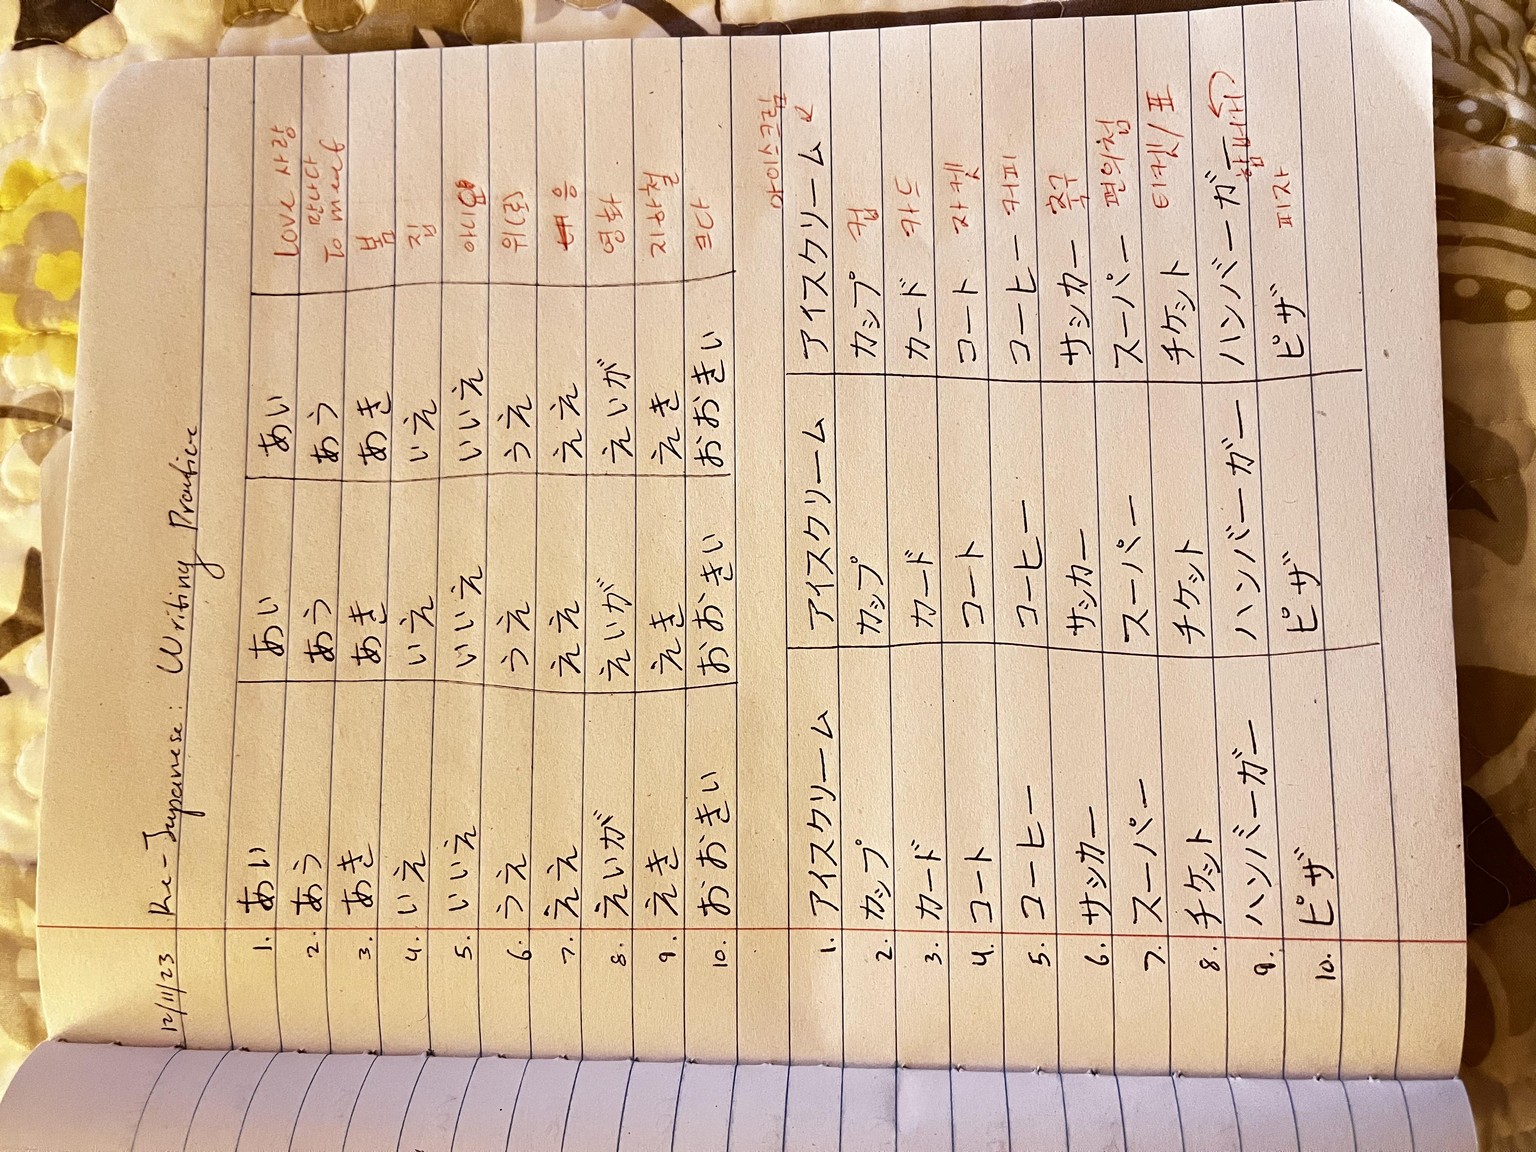 12/11/23 Pre-Japanese: Writing Practice
1. あい あい あい Love 사랑
2. あう あう あう 만나다 To meet
3. あき あき あき 봄
4. いえ いえ いえ 집
5. いいえ いいえ いいえ 아니요
6. うえ うえ うえ 위(로)
7. ええ ええ ええ 응
8. えいが えいが えいが 영화
9. えき えき えき 지하철
10. おおきい おおきい おおきい 크다
아이스크림
1. アイスクリーム アイスクリーム アイスクリーム
2. カップ カップ カップ 컵
3. カード カード カード 카드
4. コート コート コート 자켓
5. コーヒー コーヒー コーヒー 커피
6. サッカー サッカー サッカー 축구
7. スーパー スーパー スーパー 편의점
8. チケット チケット チケット 티켓/표
9. ハンバーガー ハンバーガー ハンバーガー
10. ピザ ピザ ピザ 피자